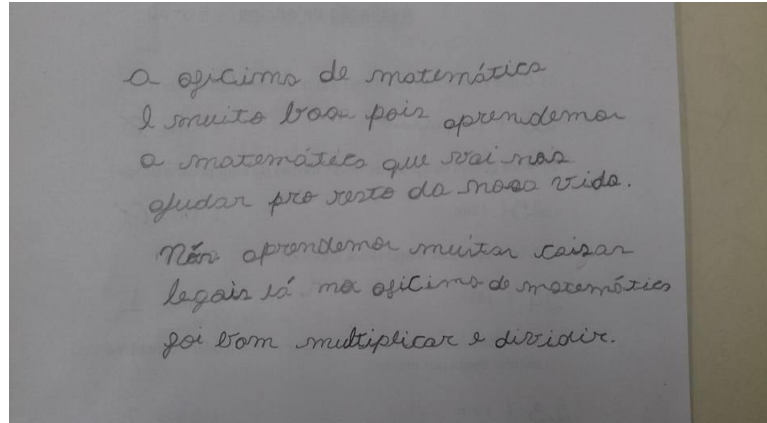 a oficima de matemática
é muito boa pois aprendemos
a matemática que vai nos
ajudar pro resto da nossa vida.
Nós aprendemos muitas coisas
legais lá na oficima de matemática
foi bom multiplicar e dividir.